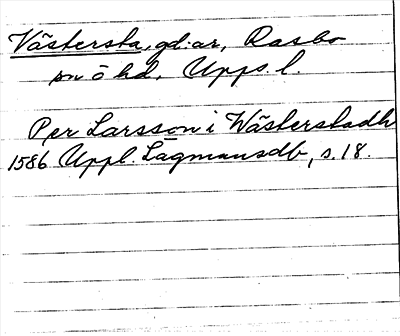 Västersta, gd:ar, Rasbo
sn o hd. Upps. l.
Per Larsson i Wästerstadh
1586 Uppl. Lagmansdb, s. 18.